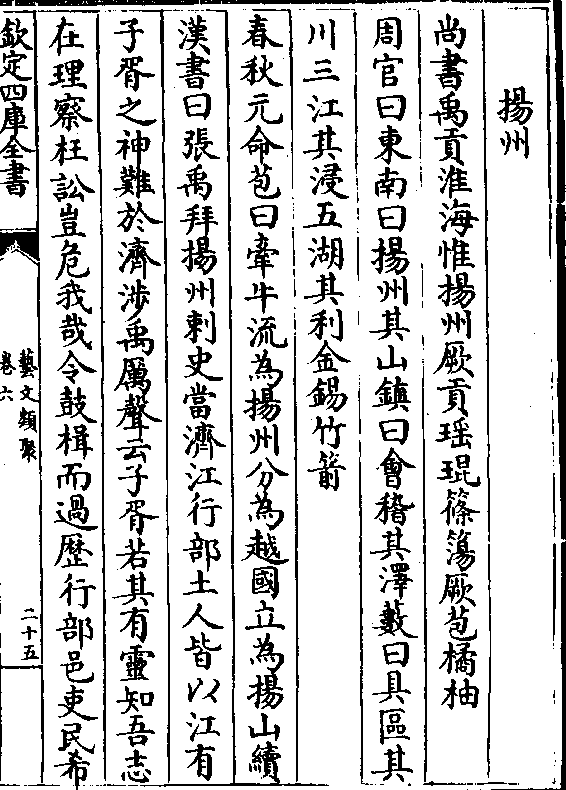 揚州
尚書禹貢淮海惟揚州厥貢瑶琨篠簜厥苞橘柚
周官曰東南曰揚州其山鎮曰會稽其澤藪曰具區其
川三江其浸五湖其利金錫竹箭
春秋元命苞曰牽牛流為揚州分為越國立為揚山續
漢書曰張禹拜揚州刺史當濟江行部土人皆以江有
子胥之神難於濟涉禹厲聲云子胥若其有靈知吾志
在理察枉訟豈危我哉令鼓楫而過歷行部邑吏民希
欽定四庫全書
藝文類聚
卷六
二十五